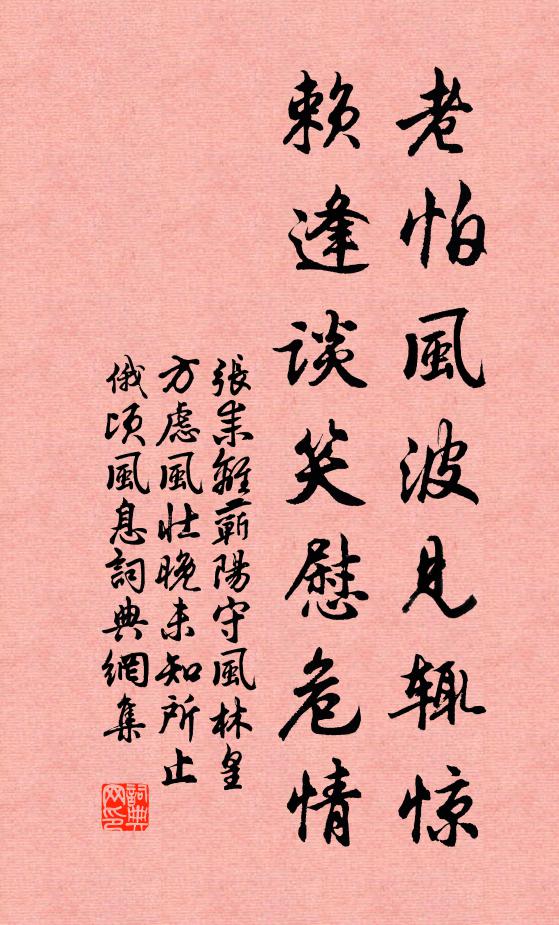 老怕風波見辄惊
赖逢谈笑慰危情
張耒離蘄陽守風林皇
方慮風壮晚未知所止
俄頃風息詞典網集
詞典网印